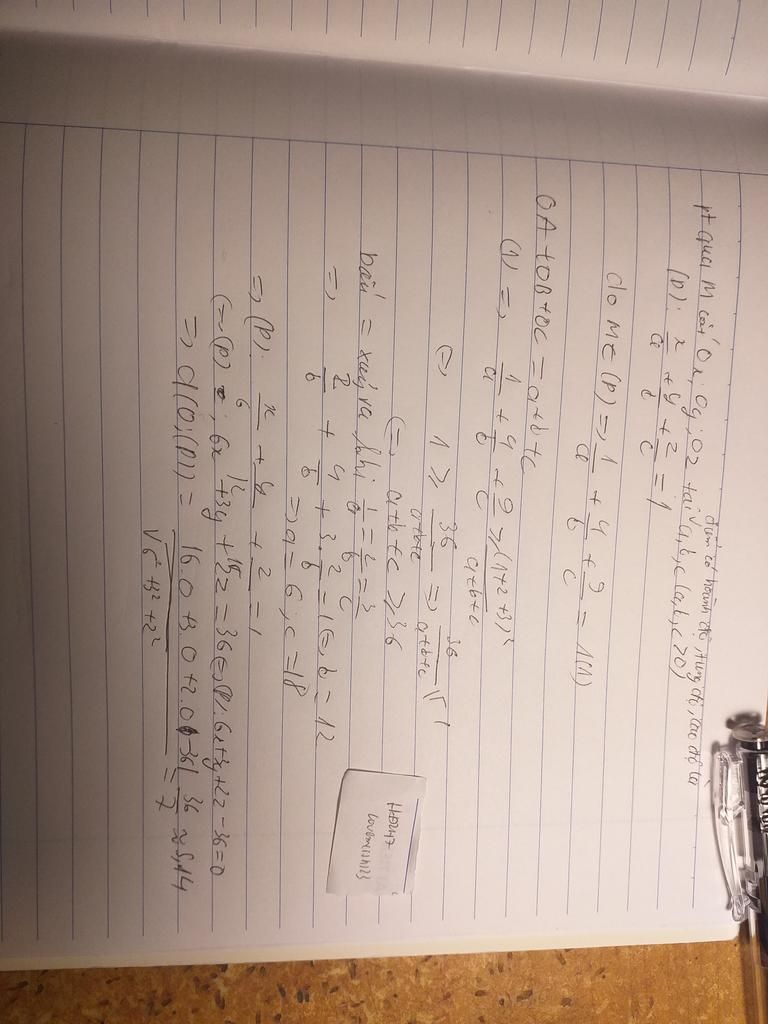 điểm có hoành độ, tung độ, cao độ là
pt qua M cắt Ox, Oy, Oz tại a, b, c (a, b, c > 0)
(P): x/a + y/b + z/c = 1
do M ∈ (P) => 1/a + 4/b + 9/c = 1 (1)
OA + OB + OC = a+b+c
(1) => 1/a + 4/b + 9/c ≥ (1+2+3)²/a+b+c
(=) 1 ≥ 36/a+b+c => 36/a+b+c ≤ 1
(=) a+b+c ≥ 36
Dấu = xảy ra khi 1/a = 2/b = 3/c
=> 2/b + 4/b + 3.2/b = 1 (=) b = 12
=> a = 6, c = 18
=> (P): x/6 + y/12 + z/18 = 1
(=) (P): 6x + 3y + 2z = 36 (=) (P): 6x+3y+2z-36=0
=> d(O;(P)) = |6.0 + 3.0 + 2.0 - 36|/√6²+3²+2² = 36/7 ≈ 5,14
HĐ247